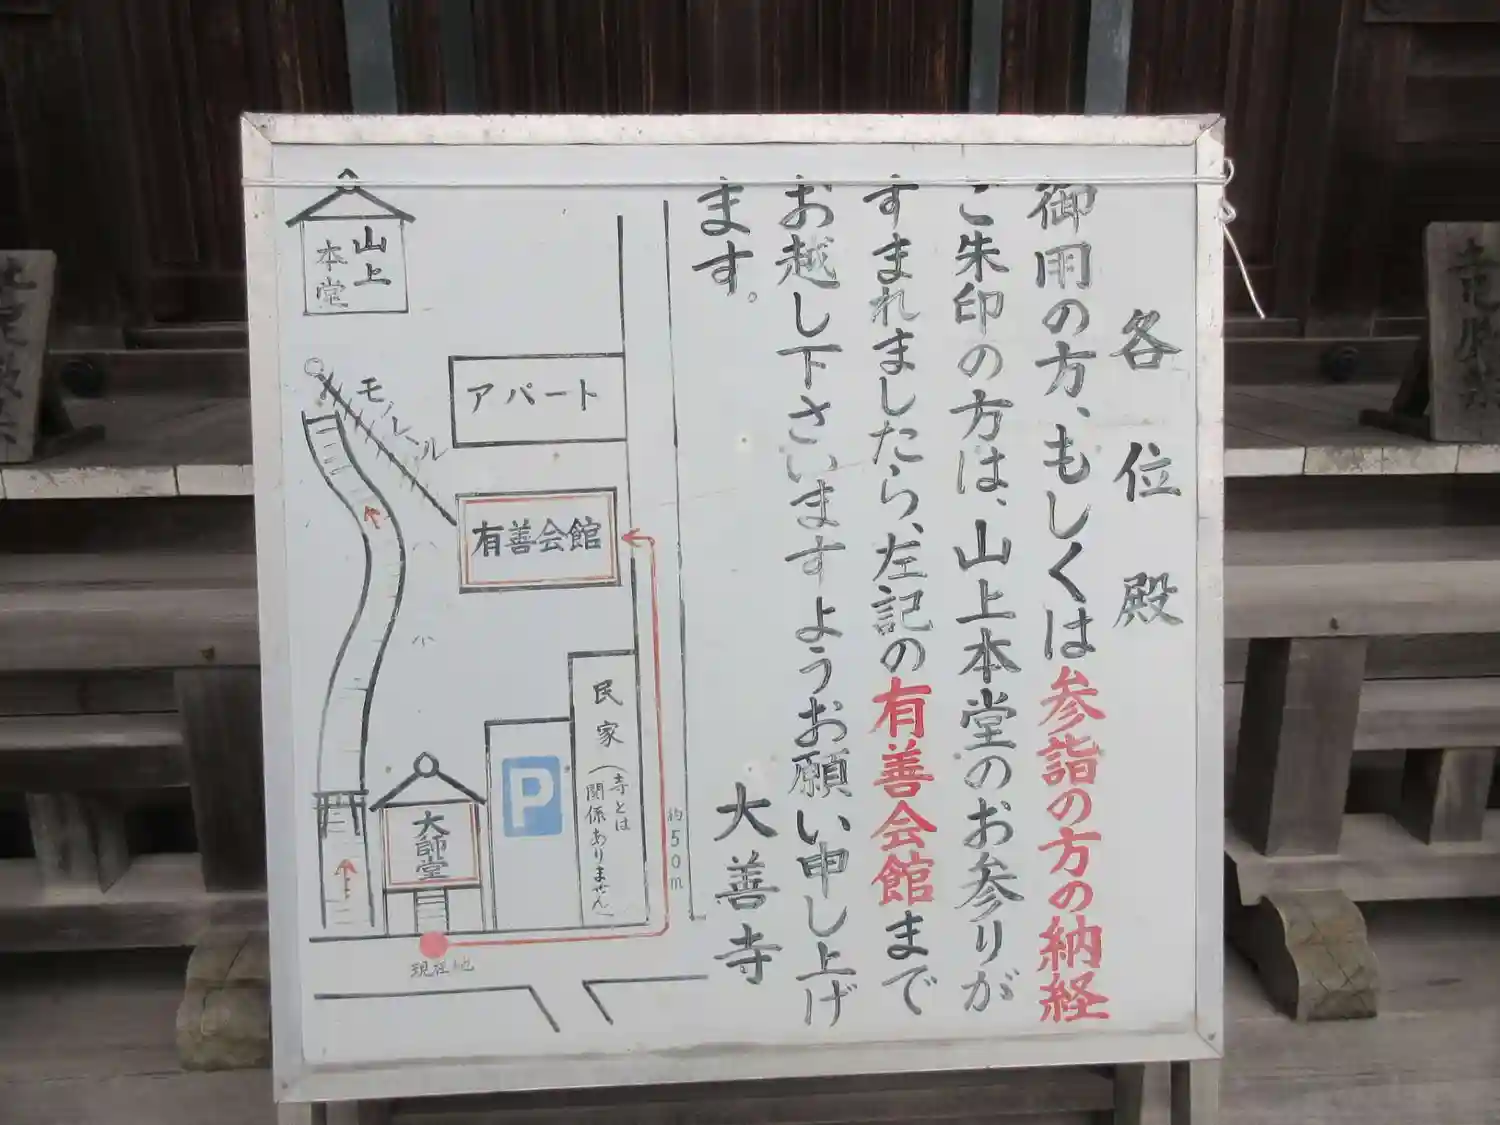 各位殿
御用の方、もしくは参詣の方の納経
ご朱印の方は、山上本堂のお参りが
すまれましたら、左記の有善会館まで
お越し下さいますようお願い申し上げ
ます。
大善寺
山上
本堂
モノレール
アパート
有善会館
民家(寺とは
関係ありません)
P
大師堂
約50m
現在地